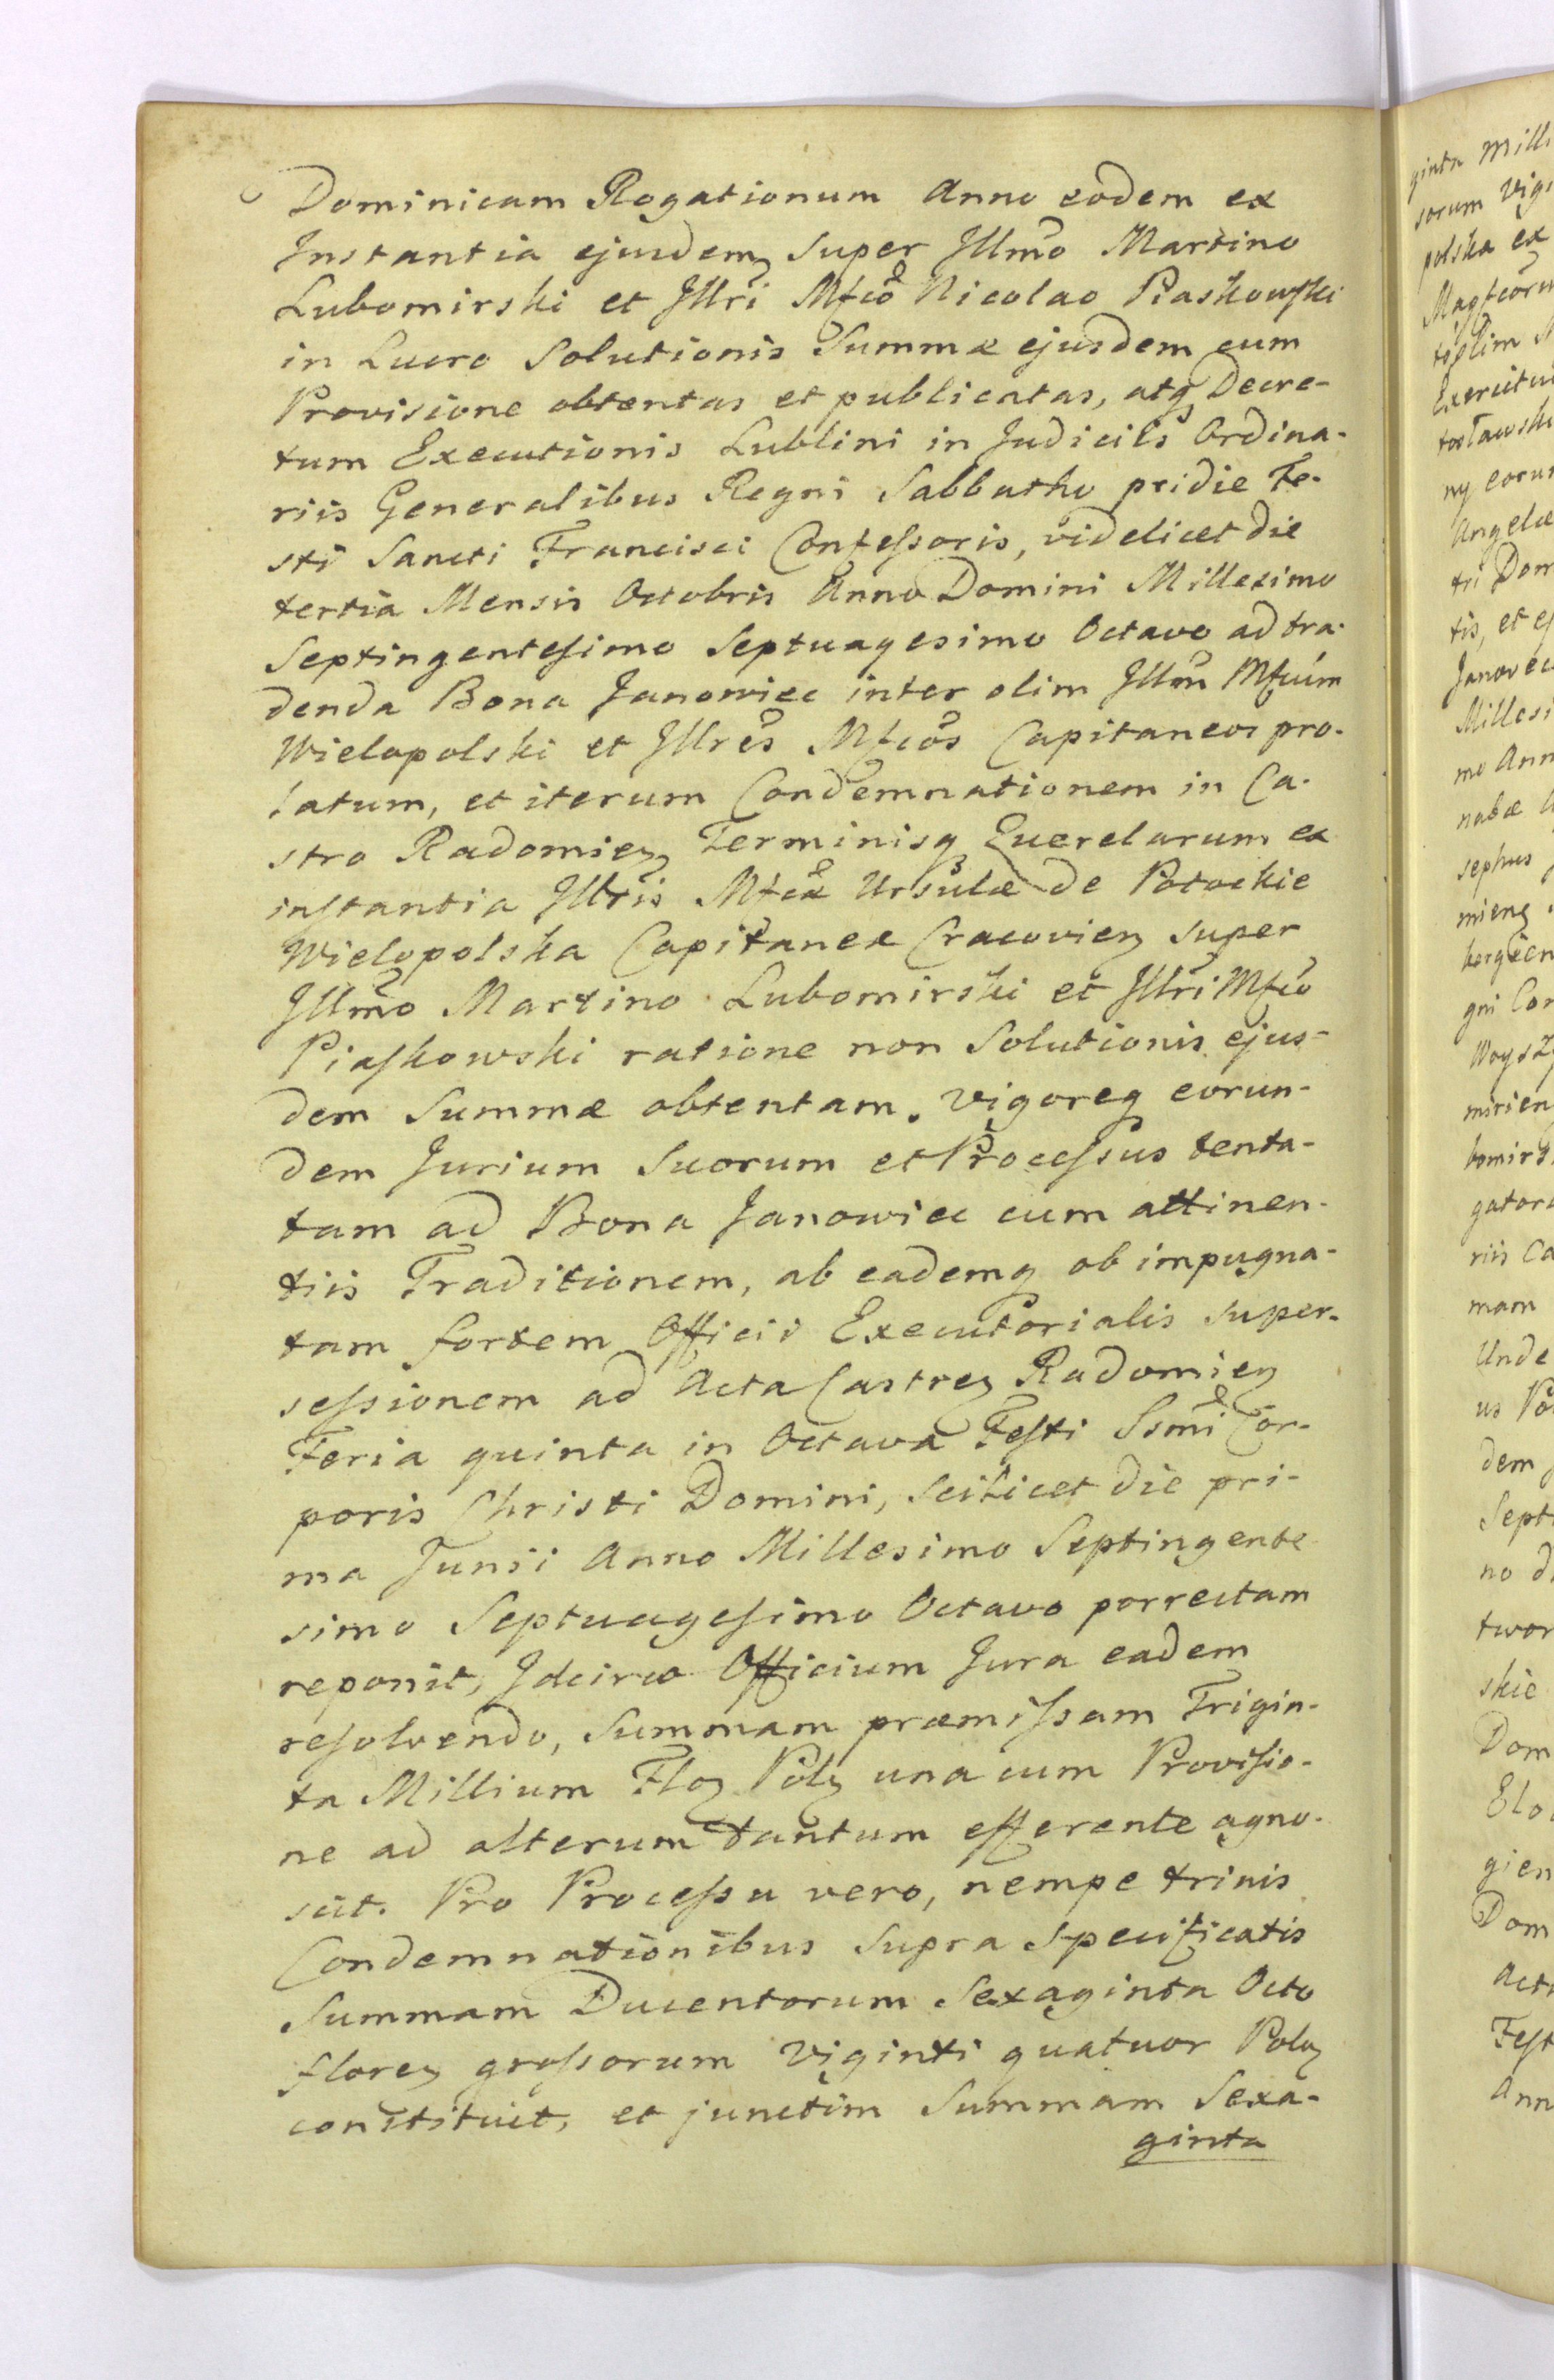 Dominicam Rogationum Anno eodem ex
Instantia ejusdem super Illmo Martino
Lubomirski et Illri Mfco Nicolao Piaskowski
in Lucro Solutionis Summæ ejusdem cum
Provisione obtentas et publicatas, atq Decre-
tum Executionis Lublini in Judiciis Ordina-
riis Generalibus Regni Sabbatho pridie Fe-
sti Sancti Francisci Confessoris, videlicet die
tertia Mensis Octobris Anno Domini Millesimo
Septingentesimo Septuagesimo Octavo ad tra-
denda Bona Janowiec inter olim Illm Mfcum
Wielopolski et Illres Mfcos Capitaneos pro-
latum, et iterum Condemnationem in Ca-
stro Radomien Terminisq Querelarum ex
instantia Illris Mfcæ Ursulæ de Potockie
Wielopolska Capitaneæ Cracovien super
Illmo Martino Lubomirski et Illri Mfco
Piaskowski ratione non Solutionis ejus-
dem Summæ obtentam. Vigoreq eorun-
dem Jurium Suorum et Processus tenta-
tam ad Bona Janowiec cum attinen-
tiis Traditionem, ab eademq ob impugna-
tam fortem Officii Executorialis super-
sessionem ad Acta Castren Radomien
Feria quinta in Octava Festi Ssmi Cor-
poris Christi Domini, scilicet die pri-
ma Junii Anno Millesimo Septingente
simo Septuagesimo Octavo porrectam
reponit, Idcirco Officium Jura eadem
resolvendo, Summam præmissam Trigin-
ta Millium Flo Pol una cum Provisio-
ne ad alterum tantum efferente agno-
scit. Pro Processu vero, nempe trinis
Condemnationibus supra specificatis
Summam Ducentorum Sexaginta Octo
floren grossorum Viginti quatuor Pol
constituit, et junctim Summam Sexa-
ginta
ginta Milli
sorum Vigi
polska ex
Exercitu
ny eorun
Angelæ
tri Dom
tis, et ej
Janovec
Millesi
mo Ann
nabæ
sephus
mien
gni Con
mirien
bomirs
gator
riis Ca
mam
Unde
us Po
dem
Septi
no d
twor
skie
Dom
Elo
gien
Dom
Act
Fest
Ann